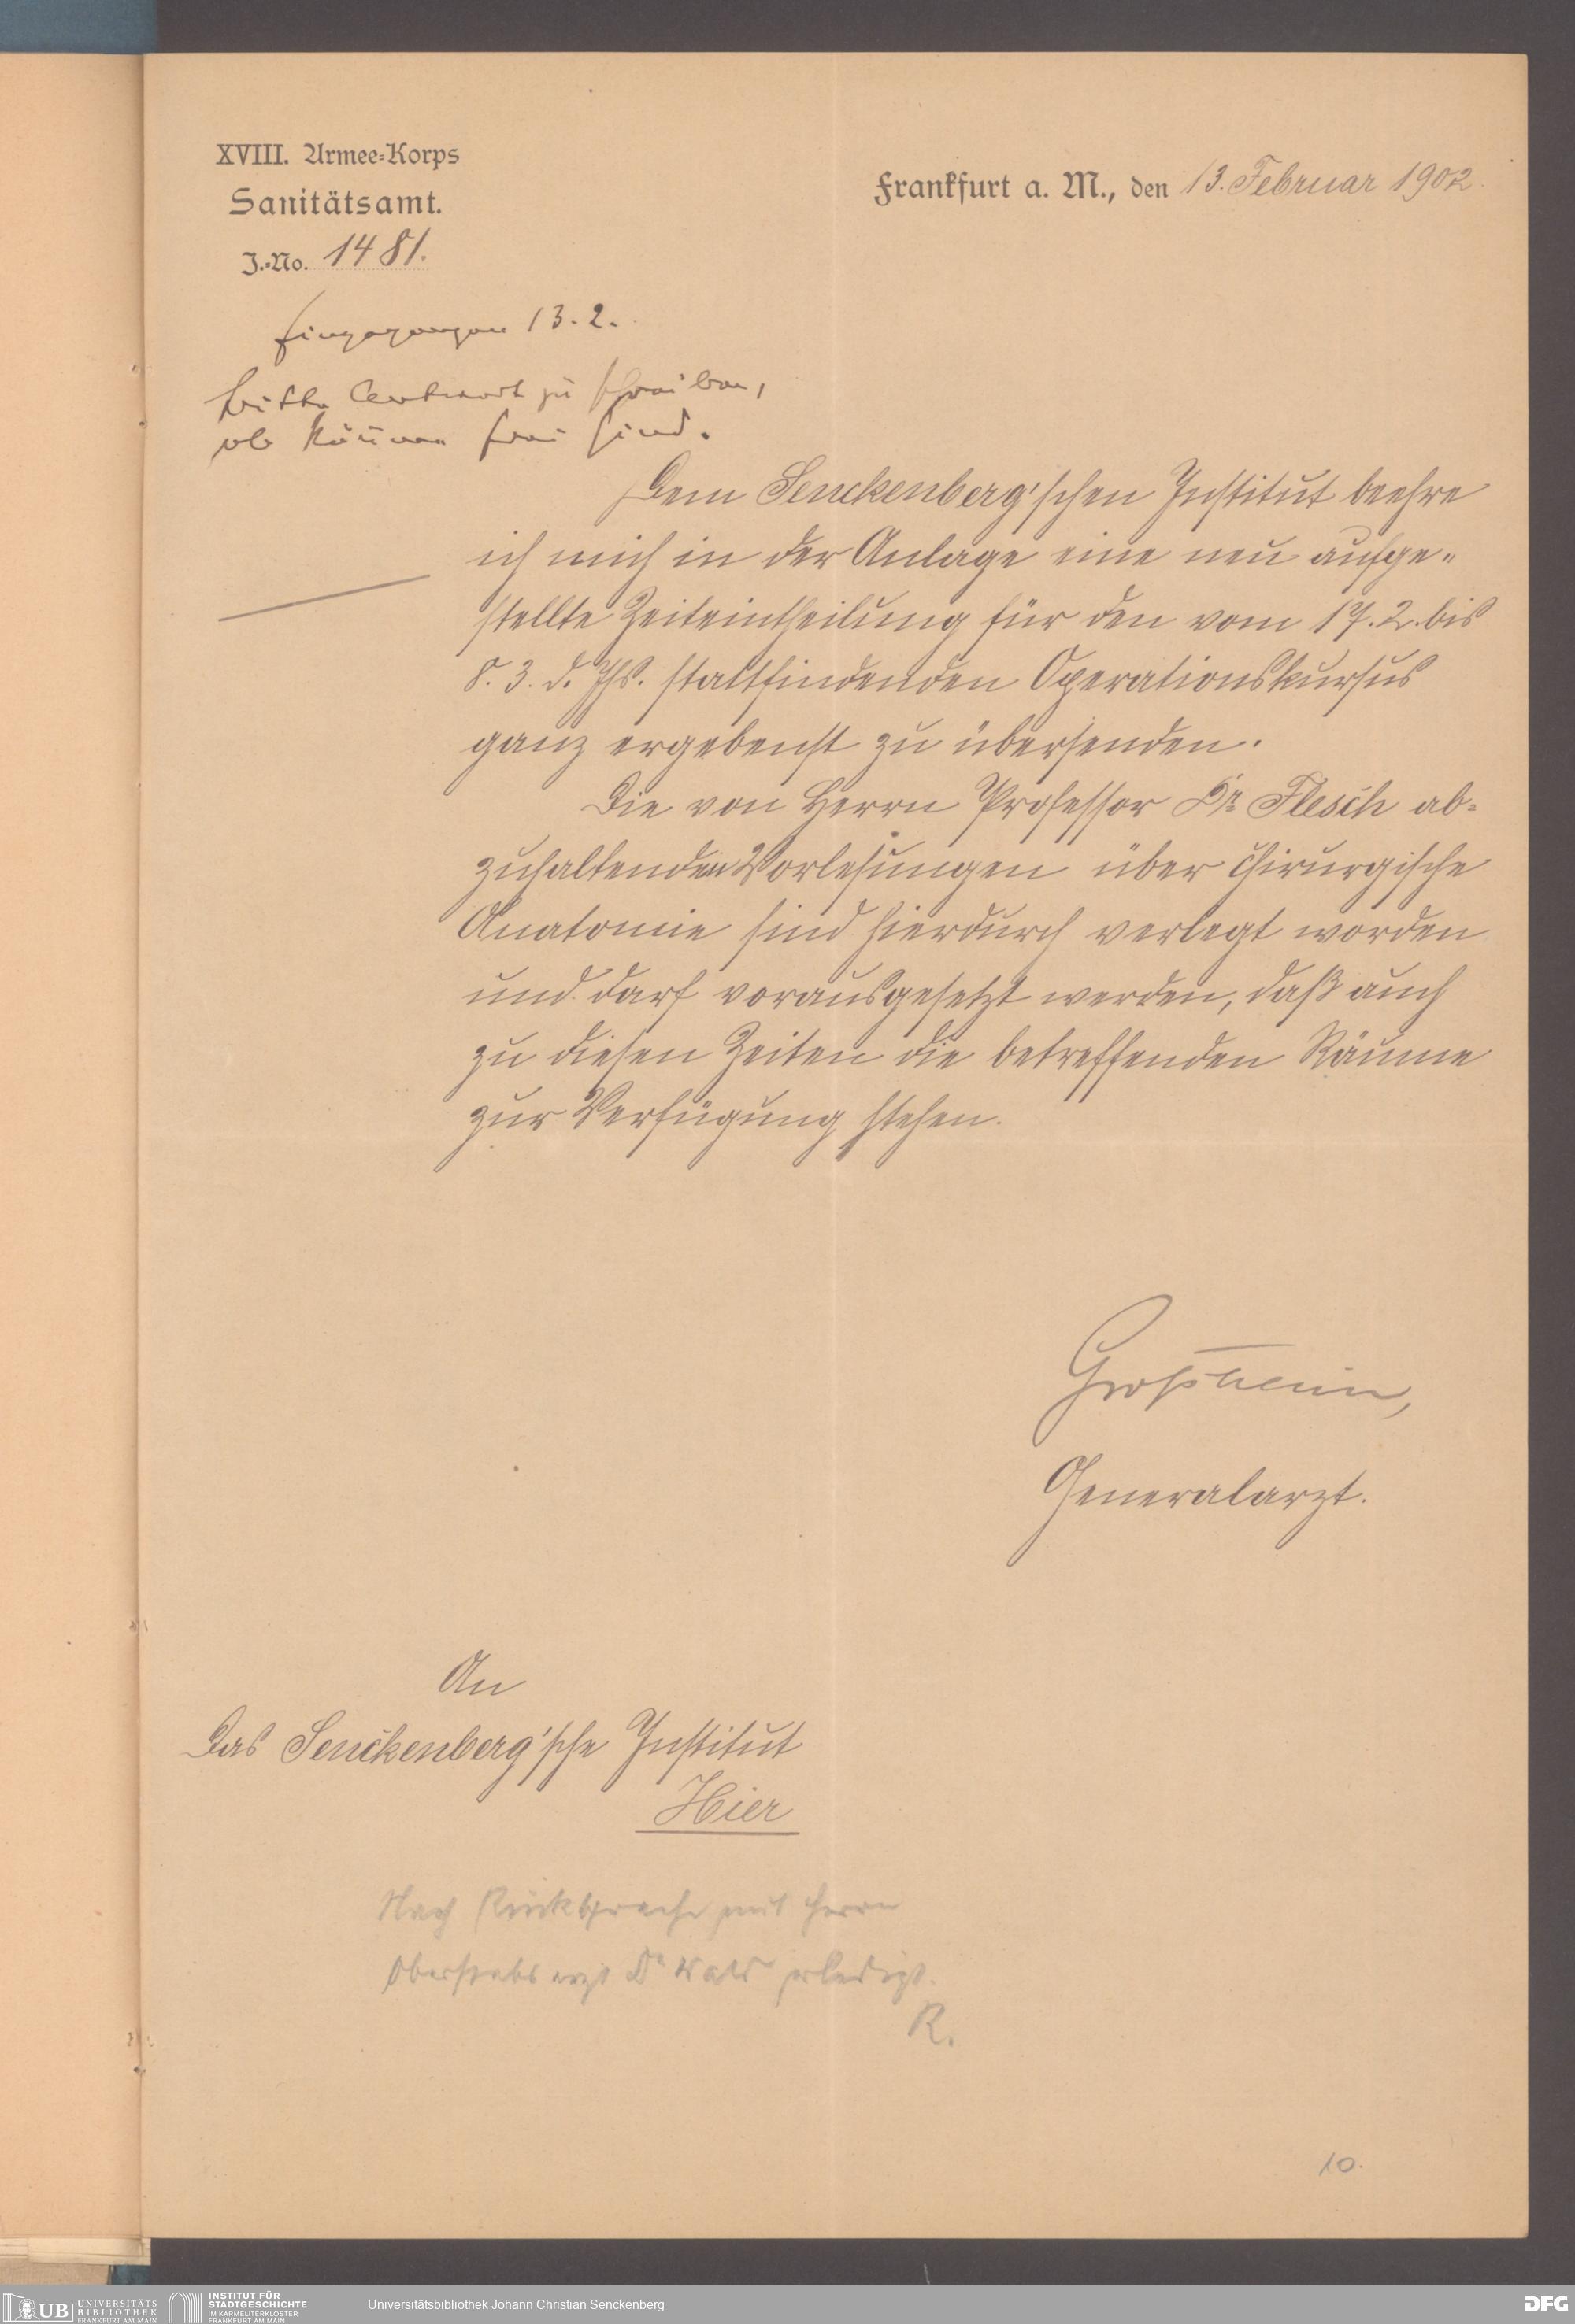 XVIII. Armee-Korps
Sanitätsamt.
J.-No. 1481.
Frankfurt a. M., den 13. Februar 1902.
Eingegangen 13.2.
Bitte Antwort zu schreiben,
ob Räume frei sind.
Dem Senckenberg'schen Institut beehre
ich mich in der Anlage eine neu aufge-
stellte Zeiteintheilung für den vom 17.2. bis
8.3. d. Jhs. stattfindenden Operationskursus
ganz ergebenst zu übersenden.
Die von Herrn Professor Dr. Flesch ab-
zuhaltenden Vorlesungen über chirurgische
Anatomie sind hierdurch verlegt worden
und darf vorausgesetzt werden, daß auch
zu diesen Zeiten die betreffenden Räume
zur Verfügung stehen.
Großheim,
Generalarzt.
An
Das Senckenberg'sche Institut
Hier
Nach Rücksprache mit Herrn
Oberstabsarzt Dr erledigt.
R.
10.
UB UNIVERSITÄTS
BIBLIOTHEK
FRANKFURT AM MAIN
INSTITUT FÜR
STADTGESCHICHTE
IM KARMELITERKLOSTER
FRANKFURT AM MAIN
Universitätsbibliothek Johann Christian Senckenberg
DFG